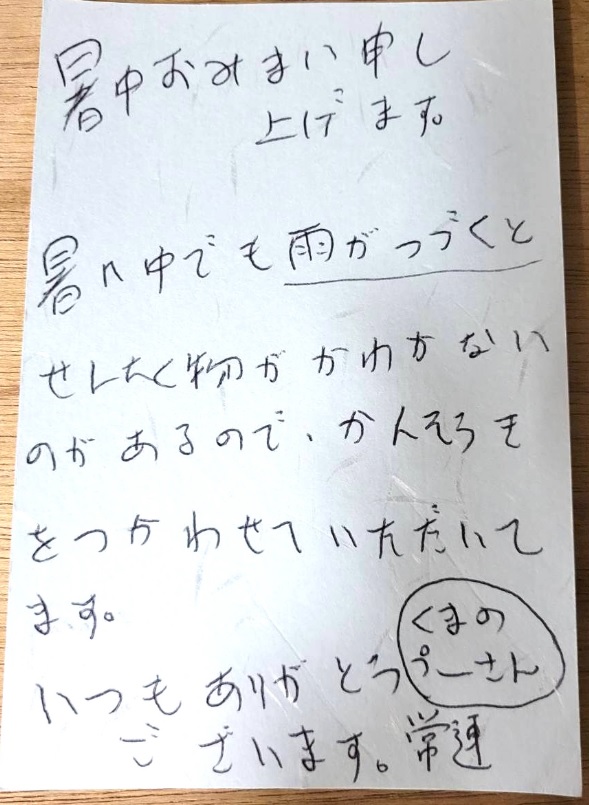 暑中おみまい申し
上げます。
暑い中でも雨がつづくと
せんたく物がかわかない
のがあるので、かんそうき
をつかわせていただいて
ます。
いつもありがとう
ございます。常連
くまの
ぷーさん